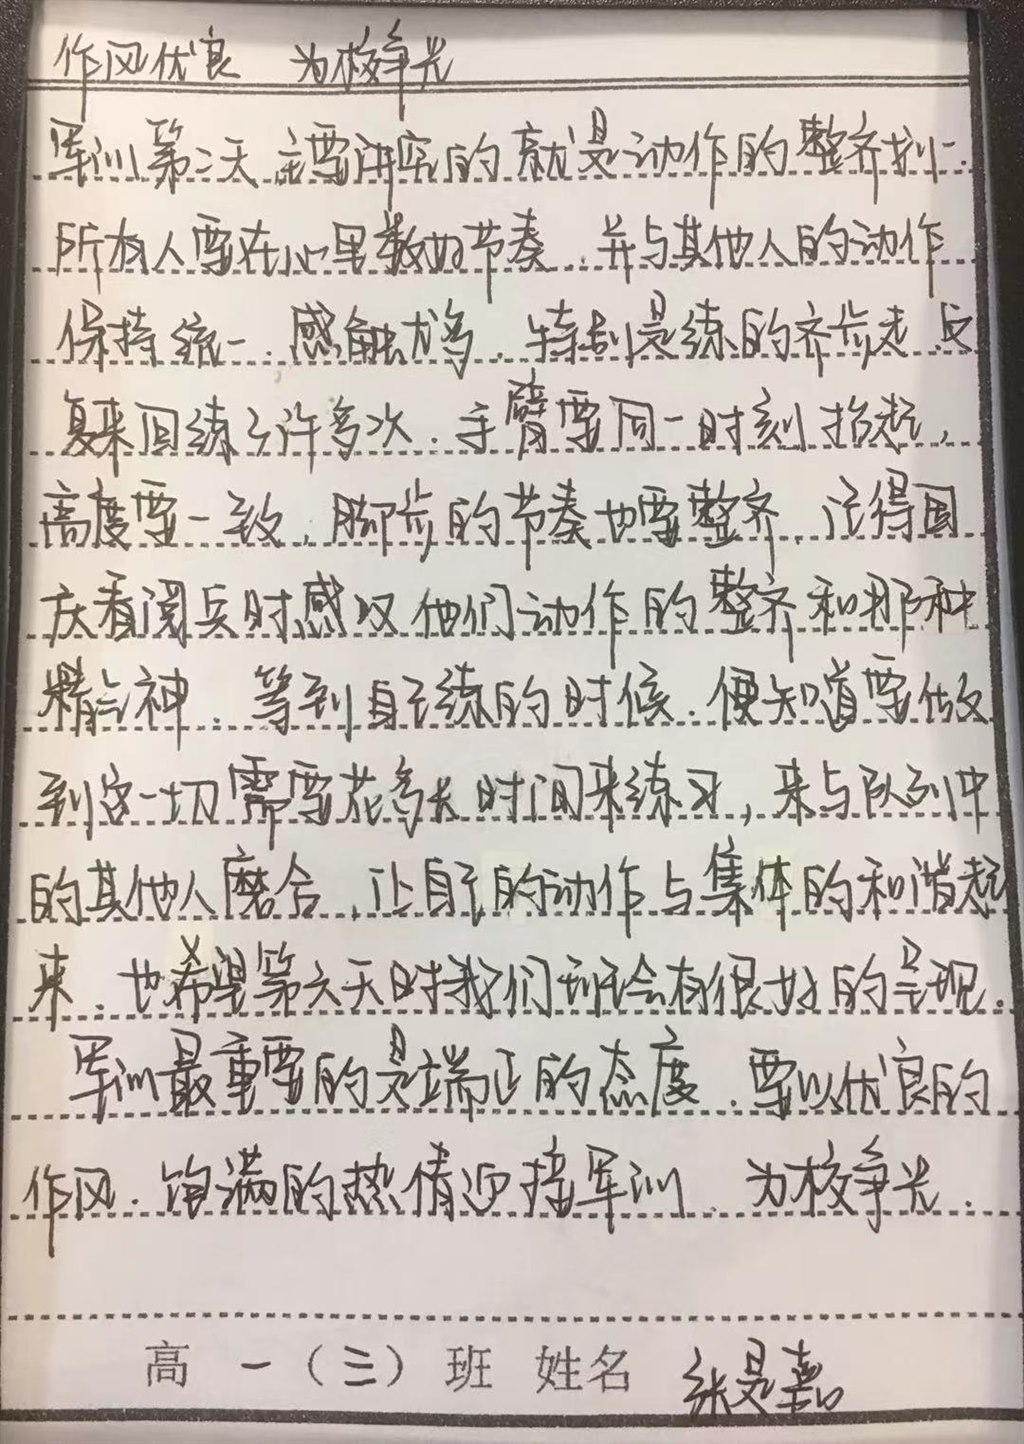 作风优良 为校争光
军训第二天,主要讲究的就是动作的整齐划一,
所有人要在心里数好节奏,并与其他人的动作
保持统一,感触尤多,特别是练的齐步走,反
复来回练了许多次,手臂要同一时刻抬起,
高度要一致,脚步的节奏也要整齐,记得国
庆看阅兵时感叹他们动作的整齐和那种
精气神,等到自己练的时候,便知道要做
到这一切需要花多长时间来练习,来与队列中
的其他人磨合,让自己的动作与集体的和谐起
来,也希望第六天时我们班会有很好的呈现。
军训最重要的是端正的态度,要以优良的
作风,饱满的热情迎接军训,为校争光.
高 一(三)班 姓名